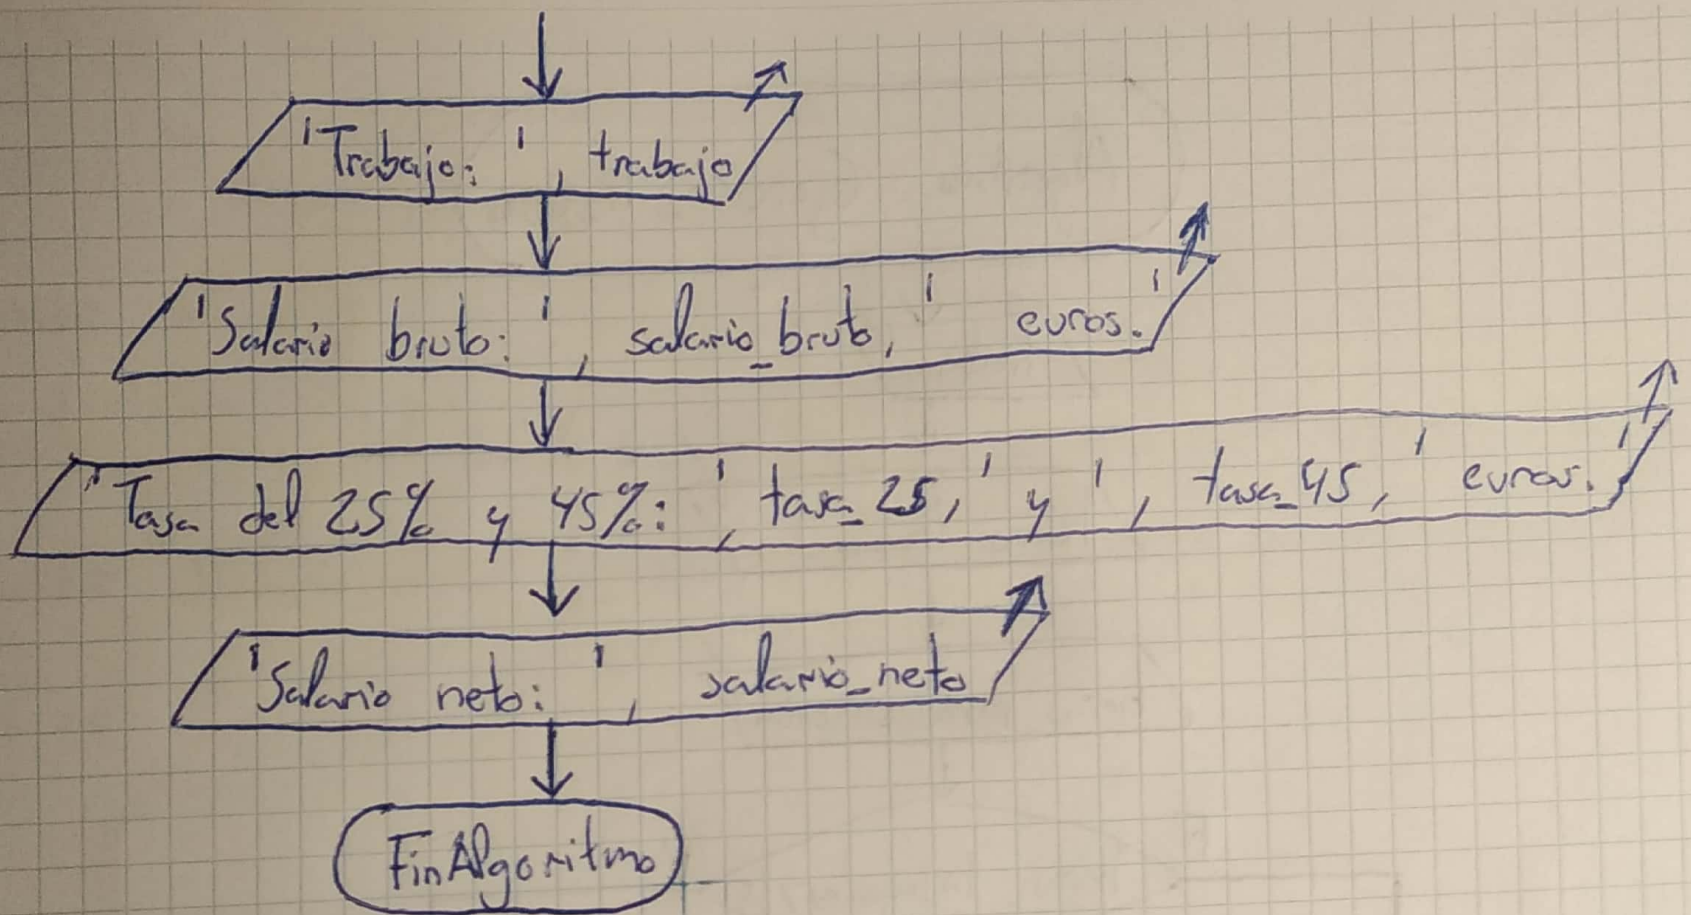 'Trabajo: ', trabajo
'Salario bruto: ', salario_bruto, ' euros.'
'Tasa del 25% y 45%: ', tasa_25, ' y ', tasa_45, ' euros.'
'Salario neto: ', salario_neto
FinAlgoritmo